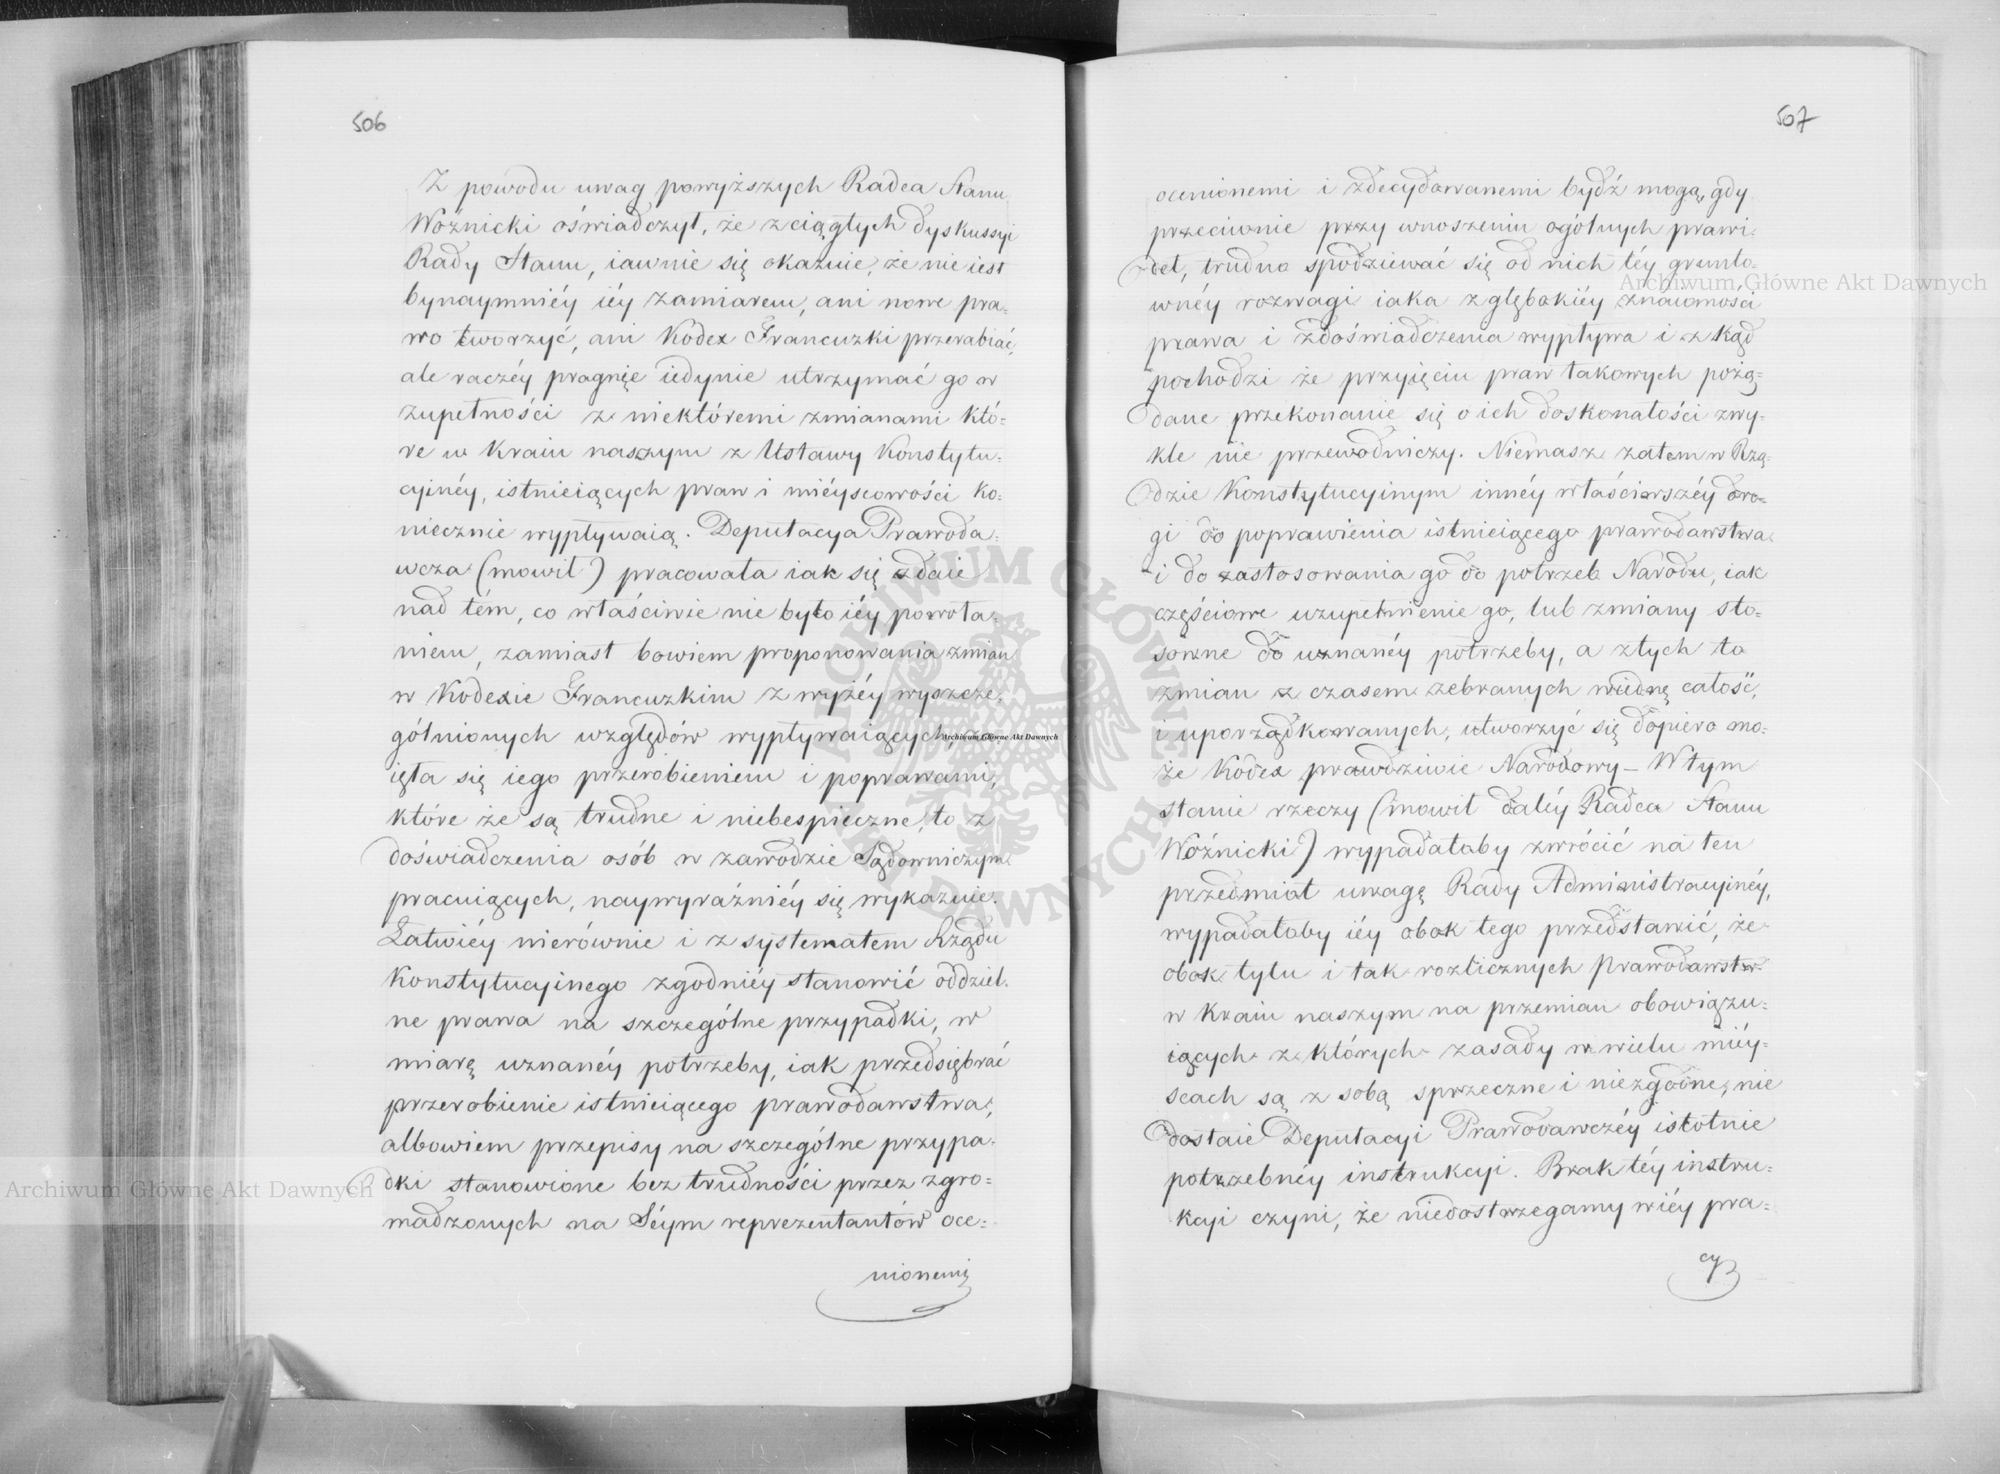 506
Z powodu uwag powyższych Radca Stanu
Woźnicki oświadczył, że z ciągłych dyskussyi
Rady Stanu, iawnie się okazuie, że nie iest
bynaymniéy iéy zamiarem, ani nowe pra-
wo tworzyć, ani Kodex Francuzki przerabiać,
ale raczéy pragnie iedynie utrzymać go w
zupełności z niektóremi zmianami któ-
re w kraiu naszym z Ustawy Konstytu-
cyinéy, istnieiących praw i miéyscowości ko-
niecznie wypływaią. Deputacya Prawoda-
wcza (mowił) pracowała iak się zdaie
nad tém, co właściwie nie było iéy powoła-
niem, zamiast bowiem proponowania zmian
w Kodexie Francuzkim z wyżéy wyszcze-
gólnionych względów wypływaiących,
ięła się iego przerobieniem i poprawami,
które że są trudne i niebespieczne, to z
doświadczenia osób w zawodzie Sądowniczym
pracuiących, naywyraźniéy się wykazuie.
Łatwiéy nierównie i z systematem Rządu
Konstytucyinego zgodniéy stanowić oddziel-
ne prawa na szczególne przypadki, w
miarę uznanéy potrzeby, iak przedsiębrać
przerobienie istnieiącego prawodawstwa,
albowiem przepisy na szczególne przypa-
dki stanowione bez trudności przez zgro-
madzonych na Séym reprezentantów oce-
nionemi
507
ocenionemi i zdecydowanemi bydź mogą, gdy
przeciwnie przy wnoszeniu ogólnych prawi-
deł, trudno spodziewać się od nich téy grunto-
wnéy rozwagi iaka z głębokiéy znaiomości
prawa i z doświadczenia wypływa i z kąd
pochodzi że przyięciu praw takowych pożą-
dane przekonanie się o ich doskonałości zwy-
kle nie przewodniczy. Niemasz zatem w Rzą-
dzie Konstytucyinym innéy właściwszéy dro-
gi do poprawienia istnieiącego prawodawstwa
i do zastosowania go do potrzeb Narodu, iak
częściowe uzupełnienie go, lub zmiany sto-
sowne do uznanéy potrzeby, a z tych to
zmian z czasem zebranych w iednę całość,
i uporządkowanych, utworzyć się dopiero mo-
że Kodex prawdziwie Narodowy – W tym
stanie rzeczy (mowił daléy Radca Stanu
Woźnicki) wypadałoby zwrócić na ten
przedmiot uwagę Rady Administracyinéy,
wypadałoby iéy obok tego przedstawić, że
obok tylu i tak rozlicznych prawodawstw
w kraiu naszym na przemian obowiązu-
iących z których zasady w wielu miéy-
scach są z sobą sprzeczne i niezgodne, nie
dostaie Deputacyi Prawodawczéy istotnie
potrzebnéy instrukcyi. Brak téy instru-
kcyi czyni, że niedostrzegamy w iéy pra-
cy
Archiwum Główne Akt Dawnych
Archiwum Główne Akt Dawnych
Archiwum Główne Akt Dawnych
ARCHIWUM GŁÓWNE AKT DAWNYCH